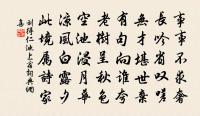 事事不求奢
長吟省嘆嗟
無才堪世棄
有句向誰誇
老樹呈秋色
空池浸月華
涼風白露夕
此境屬詩家
劉得仁池上宿詞典網